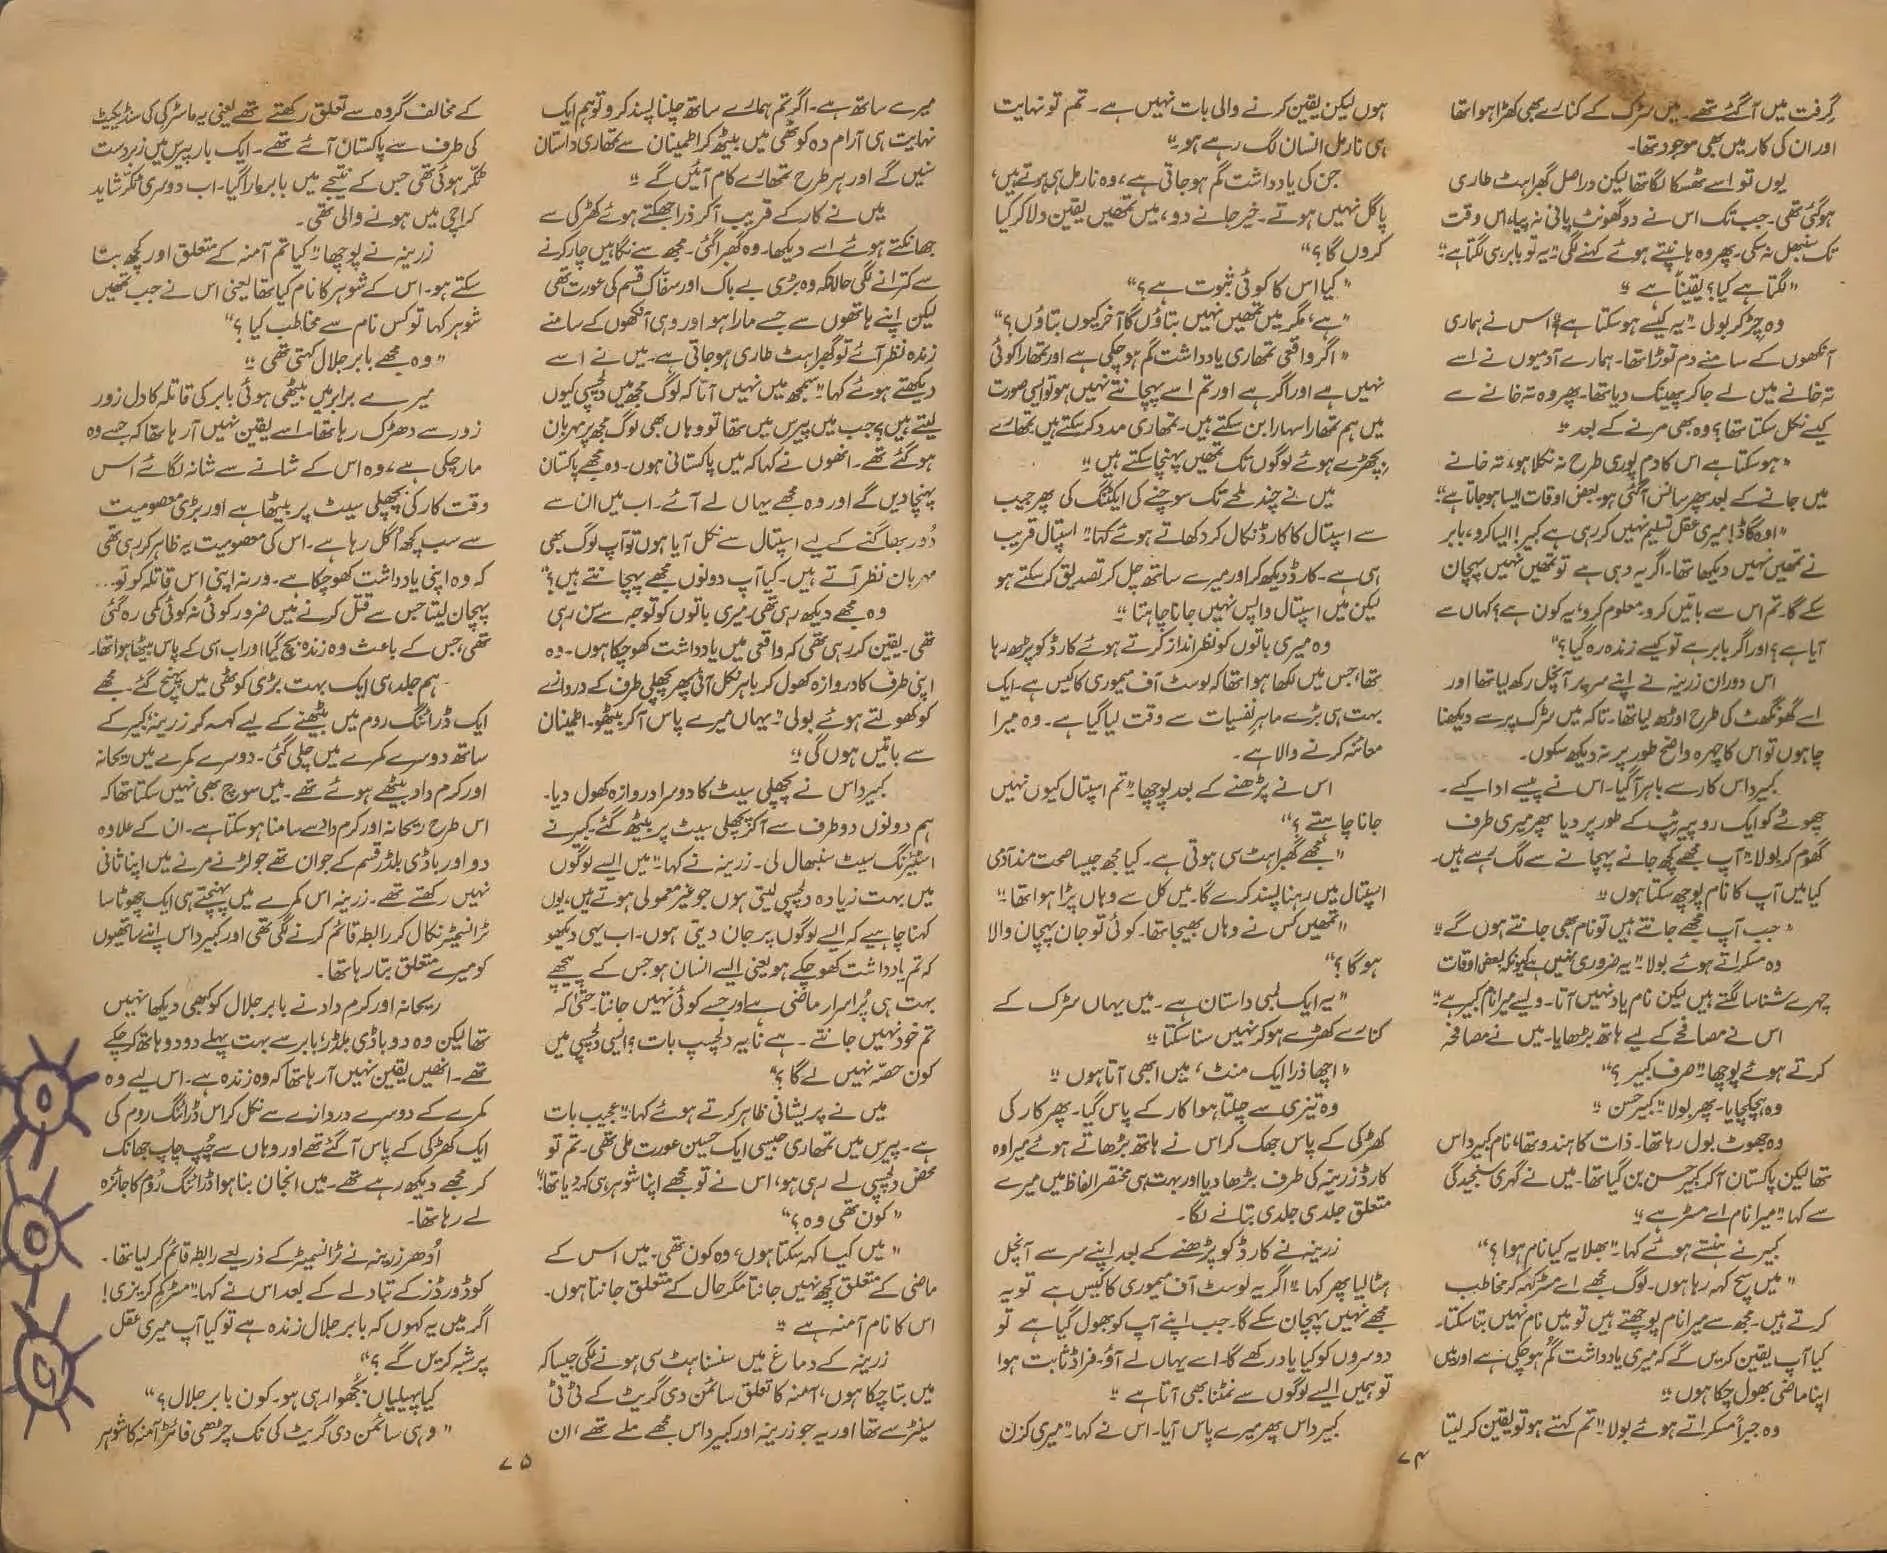 گرفت میں آ گئے تھے۔ میں سڑک کے کنارے بھی کھڑا ہوا تھا
اور ان کی کار میں بھی موجود تھا۔
یوں تو اسے ٹھسکا لگا تھا لیکن دراصل گھبراہٹ طاری
ہو گئی تھی۔ جب تک اس نے دو گھونٹ پانی نہ پیا، اس وقت
تک سنبھل نہ سکی۔ پھر وہ ہانپتے ہوئے کہنے لگی "یہ تو بابر ہی لگتا ہے"
"لگتا ہے کیا؟ یقیناً ہے"
وہ چڑ کر بولی "یہ کیسے ہو سکتا ہے؟ اس نے ہماری
آنکھوں کے سامنے دم توڑا تھا۔ ہمارے آدمیوں نے اسے
تہ خانے میں لے جا کر پھینک دیا تھا۔ پھر وہ تہ خانے سے
کیسے نکل سکتا تھا؟ وہ بھی مرنے کے بعد"
"ہو سکتا ہے اس کا دم پوری طرح نہ نکلا ہو، تہ خانے
میں جانے کے بعد پھر سانس آ گئی ہو، بعض اوقات ایسا ہو جاتا ہے"
"اوہ گاڈ! میری عقل تسلیم نہیں کر رہی ہے کبیر! ایسا کرو، بابر
نے تمھیں نہیں دیکھا تھا۔ اگر یہ وہی ہے تو تمھیں نہیں پہچان
سکے گا۔ تم اس سے باتیں کرو۔ معلوم کرو، یہ کون ہے؟ کہاں سے
آیا ہے؟ اور اگر بابر ہے تو کیسے زندہ رہ گیا؟"
اس دوران زرینہ نے اپنے سر پر آنچل رکھ لیا تھا اور
اسے گھونگھٹ کی طرح اوڑھ لیا تھا۔ تاکہ میں سڑک پر سے دیکھنا
چاہوں تو اس کا چہرہ واضح طور پر نہ دیکھ سکوں۔
کبیر داس کار سے باہر آ گیا۔ اس نے پیسے ادا کیے۔
چھوٹے کو ایک روپیہ ٹپ کے طور پر دیا پھر میری طرف
گھوم کر بولا "آپ مجھے کچھ جانے پہچانے سے لگ رہے ہیں۔
کیا میں آپ کا نام پوچھ سکتا ہوں"
"جب آپ مجھے جانتے ہیں تو نام بھی جانتے ہوں گے"
وہ مسکراتے ہوئے بولا "یہ ضروری نہیں ہے کیونکہ بعض اوقات
چہرے شناسا لگتے ہیں لیکن نام یاد نہیں آتا۔ ویسے میرا نام کبیر ہے"
اس نے مصافحے کے لیے ہاتھ بڑھایا۔ میں نے مصافحہ
کرتے ہوئے پوچھا "صرف کبیر؟"
وہ ہچکچایا۔ پھر بولا "کبیر حسن"
وہ جھوٹ بول رہا تھا۔ ذات کا ہندو تھا، نام کبیر داس
تھا لیکن پاکستان آ کر کبیر حسن بن گیا تھا۔ میں نے گہری سنجیدگی
سے کہا "میرا نام اے مسٹر ہے"
کبیر نے ہنستے ہوئے کہا "بھلا یہ کیا نام ہوا؟"
"میں سچ کہہ رہا ہوں۔ لوگ مجھے اے مسٹر کہہ کر مخاطب
کرتے ہیں۔ مجھ سے میرا نام پوچھتے ہیں تو میں نام نہیں بتا سکتا۔
کیا آپ یقین کریں گے کہ میری یادداشت گم ہو چکی ہے اور میں
اپنا ماضی بھول چکا ہوں"
وہ جبراً مسکراتے ہوئے بولا "تم کہتے ہو تو یقین کر لیتا
ہوں لیکن یقین کرنے والی بات نہیں ہے۔ تم تو نہایت
ہی نارمل انسان لگ رہے ہو"
جن کی یادداشت گم ہو جاتی ہے، وہ نارمل ہی ہوتے ہیں،
پاگل نہیں ہوتے۔ خیر جانے دو، میں تمھیں یقین دلا کر کیا
کروں گا؟"
"کیا اس کا کوئی ثبوت ہے؟"
"ہے، مگر میں تمھیں نہیں بتاؤں گا آخر کیوں بتاؤں؟"
"اگر واقعی تمھاری یادداشت گم ہو چکی ہے اور تمھارا کوئی
نہیں ہے اور اگر ہے اور تم اسے پہچانتے نہیں ہو تو ایسی صورت
میں ہم تمھارا سہارا بن سکتے ہیں۔ تمھاری مدد کر سکتے ہیں تمھارے
بچھڑے ہوئے لوگوں تک تمھیں پہنچا سکتے ہیں"
میں نے چند لمحے تک سوچنے کی ایکٹنگ کی پھر جیب
سے اسپتال کا کارڈ نکال کر دکھاتے ہوئے کہا "اسپتال قریب
ہی ہے۔ کارڈ دیکھ کر اور میرے ساتھ چل کر تصدیق کر سکتے ہو
لیکن میں اسپتال واپس نہیں جانا چاہتا"
وہ میری باتوں کو نظر انداز کرتے ہوئے کارڈ کو پڑھ رہا
تھا، جس میں لکھا ہوا تھا کہ لوسٹ آف میموری کا کیس ہے۔ ایک
بہت ہی بڑے ماہر نفسیات سے وقت لیا گیا ہے۔ وہ میرا
معائنہ کرنے والا ہے۔
اس نے پڑھنے کے بعد پوچھا "تم اسپتال کیوں نہیں
جانا چاہتے؟"
"مجھے گھبراہٹ سی ہوتی ہے۔ کیا مجھ جیسا صحت مند آدمی
اسپتال میں رہنا پسند کرے گا۔ میں کل سے وہاں پڑا ہوا تھا"
"تمھیں کس نے وہاں بھیجا تھا۔ کوئی تو جان پہچان والا
ہو گا؟"
"یہ ایک لمبی داستان ہے۔ میں یہاں سڑک کے
کنارے کھڑے ہو کر نہیں سنا سکتا"
"اچھا ذرا ایک منٹ، میں ابھی آتا ہوں"
وہ تیزی سے چلتا ہوا کار کے پاس گیا۔ پھر کار کی
کھڑکی کے پاس جھک کر اس نے ہاتھ بڑھاتے ہوئے میرا وہ
کارڈ زرینہ کی طرف بڑھا دیا اور بہت ہی مختصر الفاظ میں میرے
متعلق جلدی جلدی بتانے لگا۔
زرینہ نے کارڈ کو پڑھنے کے بعد اپنے سر سے آنچل
ہٹا لیا پھر کہا "اگر یہ لوسٹ آف میموری کا کیس ہے تو یہ
مجھے نہیں پہچان سکے گا۔ جب اپنے آپ کو بھول گیا ہے تو
دوسروں کو کیا یاد رکھے گا۔ اسے یہاں لے آؤ۔ فراڈ ثابت ہوا
تو ہمیں ایسے لوگوں سے نمٹنا بھی آتا ہے"
کبیر داس پھر میرے پاس آیا۔ اس نے کہا "میری کزن
۷۴
میرے ساتھ ہے۔ اگر تم ہمارے ساتھ چلنا پسند کرو تو ہم ایک
نہایت ہی آرام دہ کوٹھی میں بیٹھ کر اطمینان سے تمھاری داستان
سنیں گے اور ہر طرح تمھارے کام آئیں گے"
میں نے کار کے قریب آ کر ذرا جھکتے ہوئے کھڑکی سے
جھانکتے ہوئے اسے دیکھا۔ وہ گھبرا گئی۔ مجھ سے نگاہیں چار کرنے
سے کترانے لگی حالانکہ وہ بڑی بے باک اور سفاک قسم کی عورت تھی
لیکن اپنے ہاتھوں سے جسے مارا ہو اور وہی آنکھوں کے سامنے
زندہ نظر آئے تو گھبراہٹ طاری ہو جاتی ہے۔ میں نے اسے
دیکھتے ہوئے کہا "سمجھ میں نہیں آتا کہ لوگ مجھ میں دلچسپی کیوں
لیتے ہیں؟ جب میں پیرس میں تھا تو وہاں بھی لوگ مجھ پر مہربان
ہو گئے تھے۔ انھوں نے کہا کہ میں پاکستانی ہوں۔ وہ مجھے پاکستان
پہنچا دیں گے اور وہ مجھے یہاں لے آئے۔ اب میں ان سے
دور بھاگنے کے لیے اسپتال سے نکل آیا ہوں تو آپ لوگ بھی
مہربان نظر آتے ہیں۔ کیا آپ دونوں مجھے پہچانتے ہیں؟"
وہ مجھے دیکھ رہی تھی۔ میری باتوں کو توجہ سے سن رہی
تھی۔ یقین کر رہی تھی کہ واقعی میں یادداشت کھو چکا ہوں۔ وہ
اپنی طرف کا دروازہ کھول کر باہر نکل آئی پھر پچھلی طرف کے دروازے
کو کھولتے ہوئے بولی "یہاں میرے پاس آ کر بیٹھو۔ اطمینان
سے باتیں ہوں گی"
کبیر داس نے پچھلی سیٹ کا دوسرا دروازہ کھول دیا۔
ہم دونوں دو طرف سے آ کر پچھلی سیٹ پر بیٹھ گئے۔ کبیر نے
اسٹیئرنگ سیٹ سنبھال لی۔ زرینہ نے کہا "میں ایسے لوگوں
میں بہت زیادہ دلچسپی لیتی ہوں جو غیر معمولی ہوتے ہیں، یوں
کہنا چاہیے کہ ایسے لوگوں پر جان دیتی ہوں۔ اب یہی دیکھو
کہ تم یادداشت کھو چکے ہو یعنی ایسے انسان ہو جس کے پیچھے
بہت ہی پُراسرار ماضی ہے اور جسے کوئی نہیں جانتا۔ حتیٰ کہ
تم خود نہیں جانتے۔ ہے نا یہ دلچسپ بات؟ ایسی دلچسپی میں
کون حصہ نہیں لے گا؟"
میں نے پریشانی ظاہر کرتے ہوئے کہا "عجیب بات
ہے۔ پیرس میں تمھاری جیسی ایک حسین عورت ملی تھی۔ تم تو
محض دلچسپی لے رہی ہو، اس نے تو مجھے اپنا شوہر ہی کہہ دیا تھا"
"کون تھی وہ؟"
"میں کیا کہہ سکتا ہوں، وہ کون تھی۔ میں اس کے
ماضی کے متعلق کچھ نہیں جانتا مگر حال کے متعلق جانتا ہوں۔
اس کا نام آمنہ ہے"
زرینہ کے دماغ میں سنسناہٹ سی ہونے لگی جیسا کہ
میں بتا چکا ہوں، آمنہ کا تعلق سائمن دی گریٹ کے ٹی ٹی
سینٹر سے تھا اور یہ جو زرینہ اور کبیر داس مجھے ملے تھے، ان
کے مخالف گروہ سے تعلق رکھتے تھے یعنی یہ ماسٹر کی کی سنڈیکیٹ
کی طرف سے پاکستان آئے تھے۔ ایک بار پیرس میں زبردست
ٹکر ہوئی تھی جس کے نتیجے میں بابر مارا گیا۔ اب دوسری ٹکر شاید
کراچی میں ہونے والی تھی۔
زرینہ نے پوچھا "کیا تم آمنہ کے متعلق اور کچھ بتا
سکتے ہو۔ اس کے شوہر کا نام کیا تھا یعنی اس نے جب تمھیں
شوہر کہا تو کس نام سے مخاطب کیا؟"
"وہ مجھے بابر جلال کہتی تھی"
میرے برابر میں بیٹھی ہوئی بابر کی قاتلہ کا دل زور
زور سے دھڑک رہا تھا۔ اسے یقین نہیں آ رہا تھا کہ جسے وہ
مار چکی ہے، وہ اس کے شانے سے شانہ لگائے اس
وقت کار کی پچھلی سیٹ پر بیٹھا ہے اور بڑی معصومیت
سے سب کچھ اُگل رہا ہے۔ اس کی معصومیت یہ ظاہر کر رہی تھی
کہ وہ اپنی یادداشت کھو چکا ہے۔ ورنہ اپنی اس قاتلہ کو تو...
پہچان لیتا جس سے قتل کرنے میں ضرور کوئی نہ کوئی کمی رہ گئی
تھی، جس کے باعث وہ زندہ بچ گیا اور اب اسی کے پاس بیٹھا ہوا تھا۔
ہم جلد ہی ایک بہت بڑی کوٹھی میں پہنچ گئے۔ مجھے
ایک ڈرائنگ روم میں بیٹھنے کے لیے کہہ کر زرینہ، کبیر کے
ساتھ دوسرے کمرے میں چلی گئی۔ دوسرے کمرے میں ریحانہ
اور کرم داد بیٹھے ہوئے تھے۔ میں سوچ بھی نہیں سکتا تھا کہ
اس طرح ریحانہ اور کرم داد سے سامنا ہو سکتا ہے۔ ان کے علاوہ
دو اور باڈی بلڈر قسم کے جوان تھے جو لڑنے مرنے میں اپنا ثانی
نہیں رکھتے تھے۔ زرینہ اس کمرے میں پہنچتے ہی ایک چھوٹا سا
ٹرانسمیٹر نکال کر رابطہ قائم کرنے لگی تھی اور کبیر داس اپنے ساتھیوں
کو میرے متعلق بتا رہا تھا۔
ریحانہ اور کرم داد نے بابر جلال کو کبھی دیکھا نہیں
تھا لیکن وہ دو باڈی بلڈر، بابر سے بہت پہلے دو دو ہاتھ کر چکے
تھے۔ انھیں یقین نہیں آ رہا تھا کہ وہ زندہ ہے۔ اس لیے وہ
کمرے کے دوسرے دروازے سے نکل کر اس ڈرائنگ روم کی
ایک کھڑکی کے پاس آ گئے تھے اور وہاں سے چُپ چاپ جھانک
کر مجھے دیکھ رہے تھے۔ میں انجان بنا ہوا ڈرائنگ رُوم کا جائزہ
لے رہا تھا۔
اُدھر زرینہ نے ٹرانسمیٹر کے ذریعے رابطہ قائم کر لیا تھا۔
کوڈ ورڈز کے تبادلے کے بعد اس نے کہا "مسٹر کم کربنزی!
اگر میں یہ کہوں کہ بابر جلال زندہ ہے تو کیا آپ میری عقل
پر شبہ کریں گے؟"
کیا پہیلیاں بجھوا رہی ہو۔ کون بابر جلال؟"
"وہی سائمن دی گریٹ کی نک چڑھی فائٹر آمنہ کا شوہر
۷۵